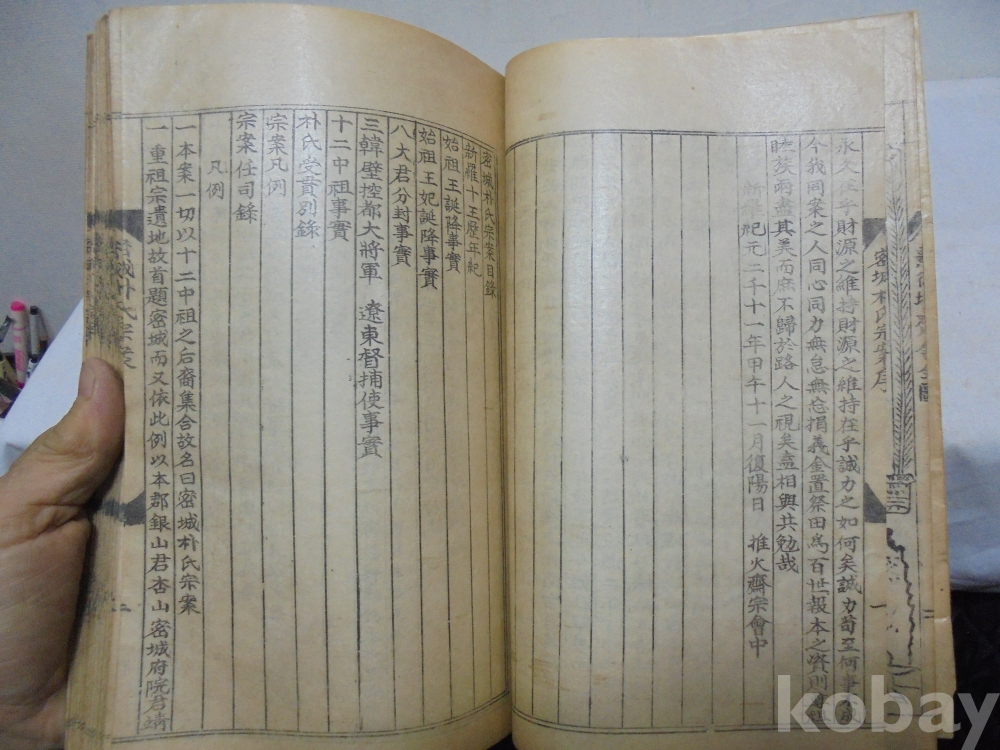 密城朴氏宗案序
永久在乎財源之維持財源之維持在乎誠力之如何矣誠力苟至何事
今我同案之人同心同力無怠無忘捐義金置祭田爲百世報本之資則
睦族兩盡其美而庶不歸於路人之視矣盍相與共勉哉
新羅紀元二千十一年甲午十一月復陽日 推火齋宗會中
密城朴氏宗案目錄
新羅十王歷年紀
始祖王誕降事實
始祖王妃誕降事實
八大君分封事實
三韓壁控都大將軍 遼東督捕使事實
十二中祖事實
朴氏受貫別錄
宗案凡例
宗案任司錄
凡例
一本案一切以十二中祖之后裔集合故名曰密城朴氏宗案
一重祖宗遺地故首題密城而又依此例以本郡銀山君杏山密城府院君靖
密城朴氏宗案
二
一
kobay